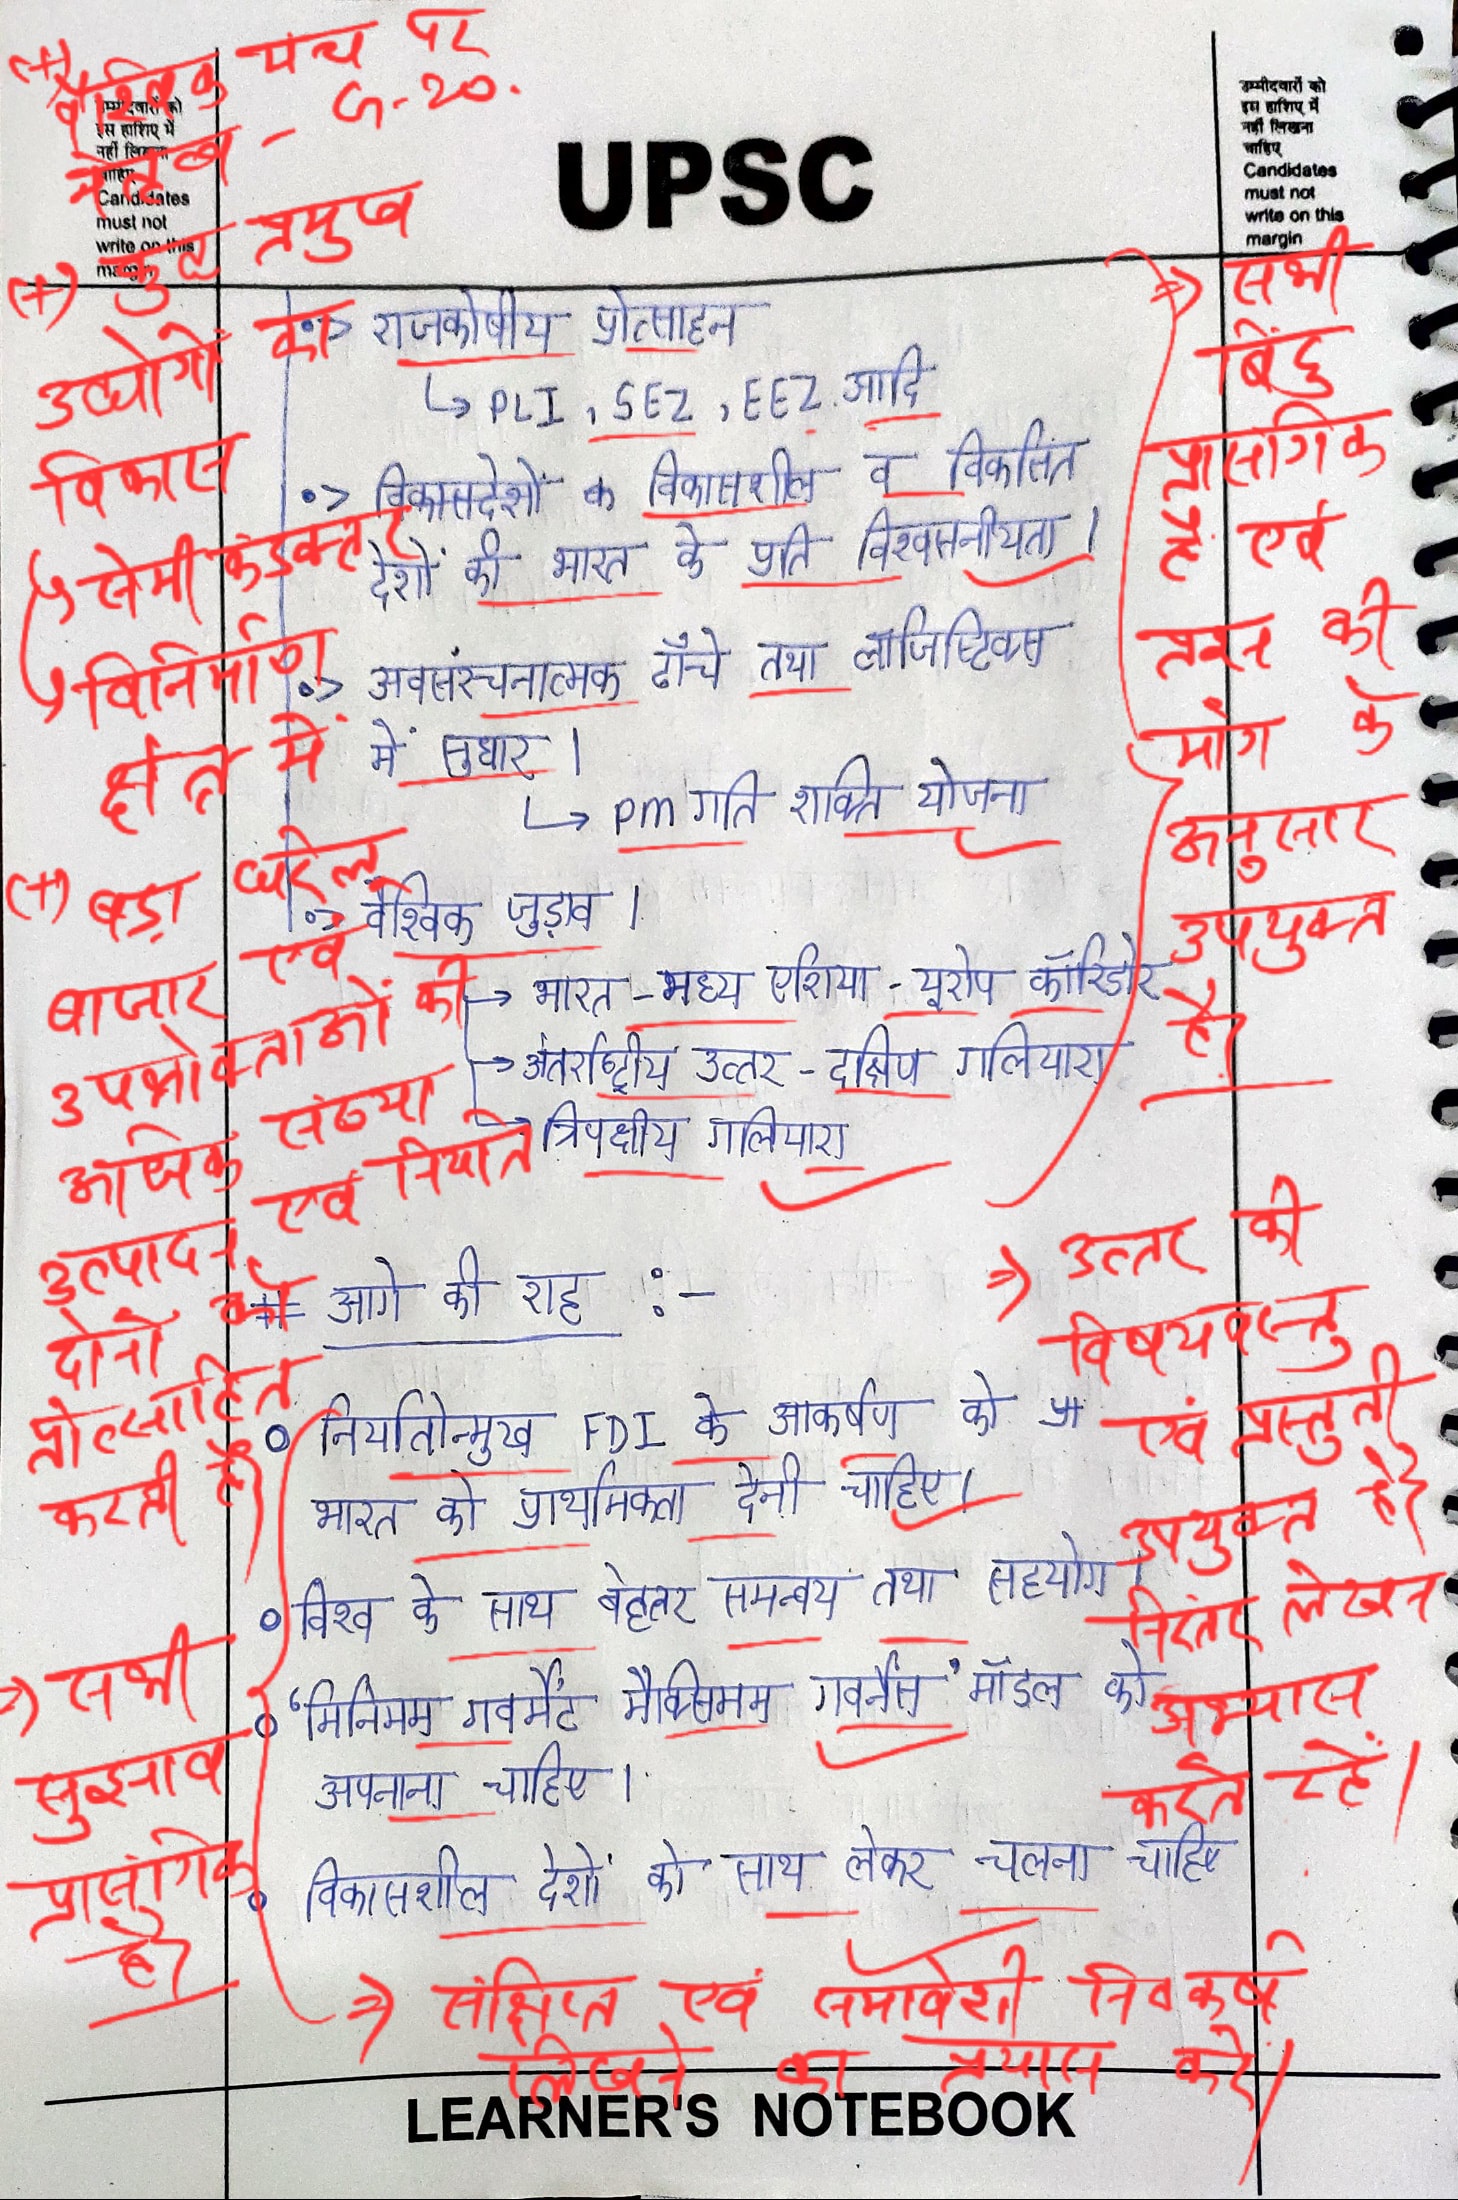 (+) वैश्विक मंच पर
नेतृत्व - G-20.
उम्मीदवारों को
इस हाशिए में
नहीं लिखना
चाहिए
Candidates
must not
write on this
margin
UPSC
उम्मीदवारों को
इस हाशिए में
नहीं लिखना
चाहिए
Candidates
must not
write on this
margin
(+) कुछ प्रमुख
उद्योगों का
विकास
↳ सेमी कंडक्टर
↳ विनिर्माण
क्षेत्र में
(+) बड़ा घरेलू
बाजार एवं
उपभोक्ताओं की
अधिक संख्या
उत्पादन एवं निर्यात
दोनों को
प्रोत्साहित
करती है।
•> राजकोषीय प्रोत्साहन
↳ PLI, SEZ, EEZ आदि
•> विकासदेशों क विकासशील व विकसित
देशों की भारत के प्रति विश्वसनीयता।
•> अवसंरचनात्मक ढाँचे तथा लॉजिष्टिक्स
में सुधार।
↳ PM गति शक्ति योजना
•> वैश्विक जुड़ाव।
→ भारत - मध्य एशिया - यूरोप कॉरिडोर
→ अंतर्राष्ट्रीय उत्तर - दक्षिण गलियारा
→ त्रिपक्षीय गलियारा
⇒ सभी
बिंदु
प्रासंगिक
है एवं
प्रश्न की
माँग के
अनुसार
उपयुक्त
है।
# आगे की राह :-
० निर्यातोन्मुख FDI के आकर्षण को
भारत को प्राथमिकता देनी चाहिए।
० विश्व के साथ बेहतर समन्वय तथा सहयोग।
० 'मिनिमम गवर्मेंट मैक्सिमम गवर्नेंस' मॉडल को
अपनाना चाहिए।
० विकासशील देशों को साथ लेकर चलना चाहिए
⇒ उत्तर की
विषयवस्तु
एवं प्रस्तुती
उपयुक्त है।
निरंतर लेखन
अभ्यास
करते रहें।
⇒ सभी
सुझाव
प्रासंगिक
है।
⇒ संक्षिप्त एवं समावेशी निष्कर्ष
लिखने का प्रयास करें।
LEARNER'S NOTEBOOK